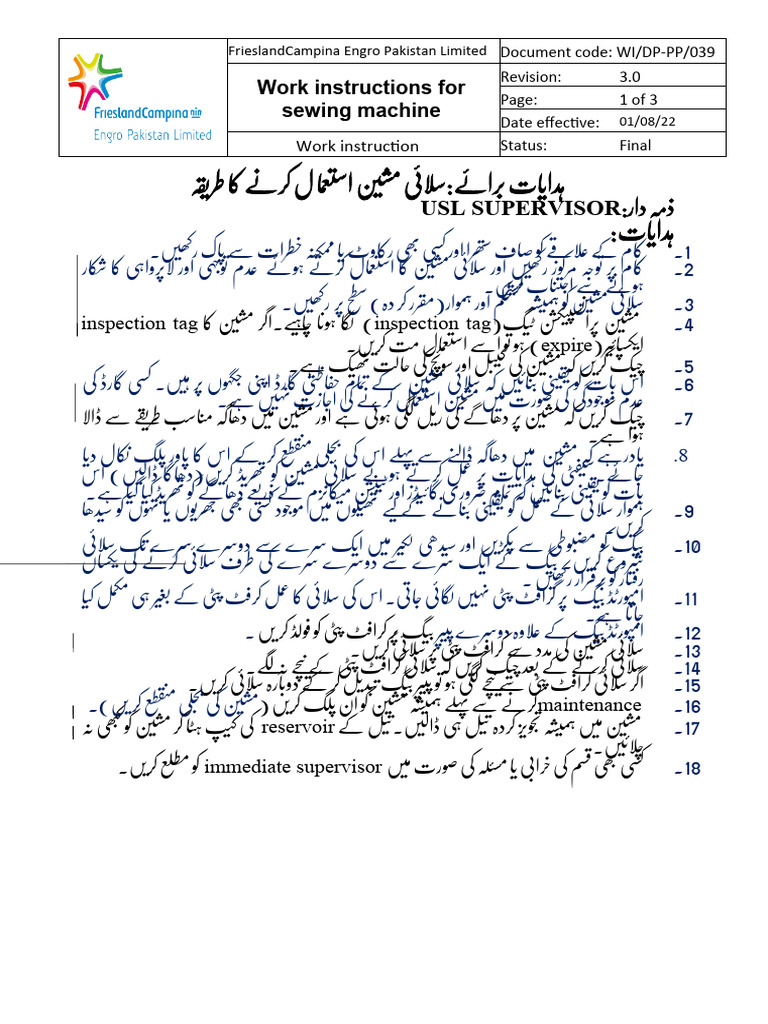 FrieslandCampina
Engro Pakistan Limited
FrieslandCampina Engro Pakistan Limited
Work instructions for
sewing machine
Work instruction
Document code: WI/DP-PP/039
Revision: 3.0
Page: 1 of 3
Date effective: 01/08/22
Status: Final
ہدایات برائے:سلائی مشین استعمال کرنے کا طریقہ
ذمہ دار:USL SUPERVISOR
ہدایات:
1۔ کام کے علاقے کو صاف ستھرا اور کسی بھی رکاوٹ یا ممکنہ خطرات سے پاک رکھیں۔
2۔ کام پر توجہ مرکوز رکھیں اور سلائی مشین کا استعمال کرتے ہوئے عدم توجہی اور لاپرواہی کا شکار
ہونے سے اجتناب کریں۔
3۔ سلائی مشین کو ہمیشہ مستحکم اور ہموار(مقرر کردہ) سطح پر رکھیں۔
4۔ مشین پر انسپکیشن ٹیگ(inspection tag) لگا ہونا چاہیے۔اگر مشین کا inspection tag
ایکسپائیر(expire) ہو تو اسے استعمال مت کریں۔
5۔ چیک کریں کہ مشین کی کیبل اور سوئچ کی حالت ٹھیک ہے۔
6۔ اس بات کو یقینی بنائیں کہ سلائی مشین کے تمام حفاظتی گارڈ اپنی جگہوں پر ہیں۔ کسی گارڈ کی
عدم موجودگی کی صورت میں مشین استعمال کرنے کی اجازت نہیں ہے۔
7۔ چیک کریں کہ مشین پر دھاگے کی ریل لگی ہوئی ہے اور مشین میں دھاگہ مناسب طریقے سے ڈالا
ہوا ہے۔
8. یاد رہے کہ مشین میں دھاگہ ڈالنے سے پہلے اس کی بجلی منقطع کر کے اس کا پاور پلگ نکال دیا
جائے۔ سیفٹی کی ہدایات پر عمل کرتے ہوئے سلائی مشین کو تھریڈ کریں(دھاگا ڈالیں) اس
بات کو یقینی بنائیں کہ تمام ضروری گائیڈز اور ٹینشن میکانزم کے ذریعے دھاگے کو تھریڈ کیا گیا ہے۔
9۔ ہموار سلائی کے عمل کو یقینی بنانے کے لیے تھیلوں میں موجود کسی بھی جھریوں یا تہوں کو سیدھا
کریں۔
10۔ بیگ کو مضبوطی سے پکڑیں اور سیدھی لکیر میں ایک سرے سے دوسرے سرے تک سلائی
شروع کریں۔ بیگ کے ایک سرے سے دوسرے سرے کی طرف سلائی کرنے کی یکساں
رفتار کو برقرار رکھیں۔
11۔ امپورٹڈ بیگ پر کرافٹ پٹی نہیں لگائی جاتی۔ اس کی سلائی کا عمل کرفٹ پٹی کے بغیر ہی مکمل کیا
جاتا ہے۔
12۔ امپورٹڈ بیگ کے علاوہ دوسرے پیپر بیگ پر کرافٹ پٹی کو فولڈ کریں ۔
13۔ سلائی مشین کی مدد سے کرافٹ پٹی پر سلائی کریں۔
14۔ سلائی کرنے کے بعد چیک کریں کہ سلائی کرافٹ پٹی کے نیچے نہ لگے۔
15۔ اگر سلائی کرافٹ پٹی سے نیچے لگی ہو تو پیپر بیگ تبدیل کر کے دوبارہ سلائی کریں۔
16۔ maintenance کرنے سے پہلے ہمیشہ مشین کو ان پلگ کریں (مشین کی بجلی منقطع کریں)۔
17۔ مشین میں ہمیشہ تجویز کردہ تیل ہی ڈالیں۔ تیل کے reservoir کی کیپ ہٹا کر مشین کو کبھی نہ
چلائیں۔
18۔ کسی بھی قسم کی خرابی یا مسئلہ کی صورت میں immediate supervisor کو مطلع کریں۔